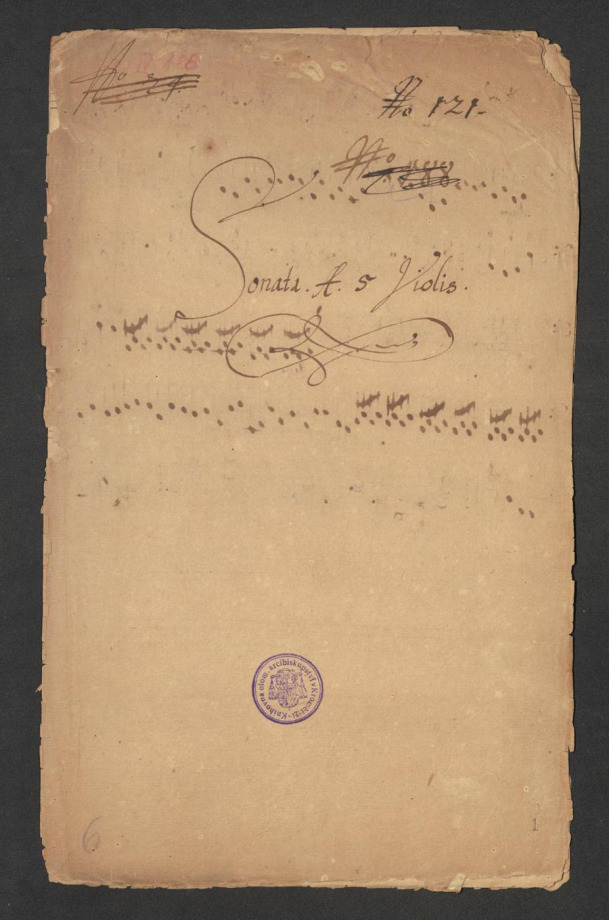 No 121.
Sonata. A. 5 Violis.
Knihovna olom. arcibiskupství v Kroměříži
6
1